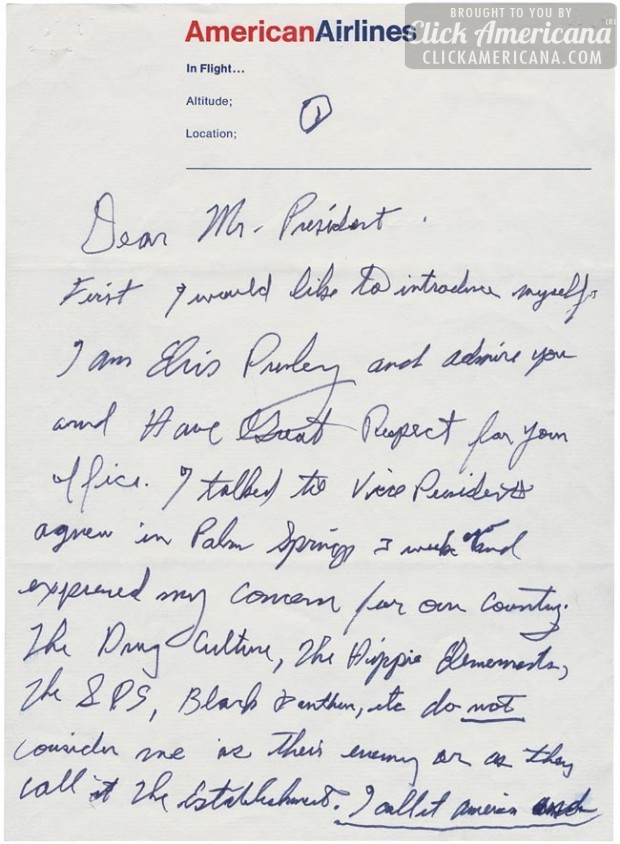 BROUGHT TO YOU BY
Click Americana
CLICKAMERICANA.COM
AmericanAirlines
In Flight...
Altitude;
Location;
1
Dear Mr. President.
First I would like to introduce myself.
I am Elvis Presley and admire you
and Have Great Respect for your
office. I talked to Vice President
agnew in Palm Springs 3 weeks ago and
expressed my concern for our country.
The Drug Culture, The Hippie Elements,
The SDS, Black Panthers, etc do not
consider me as their enemy or as they
call it The Establishment. I call it america and